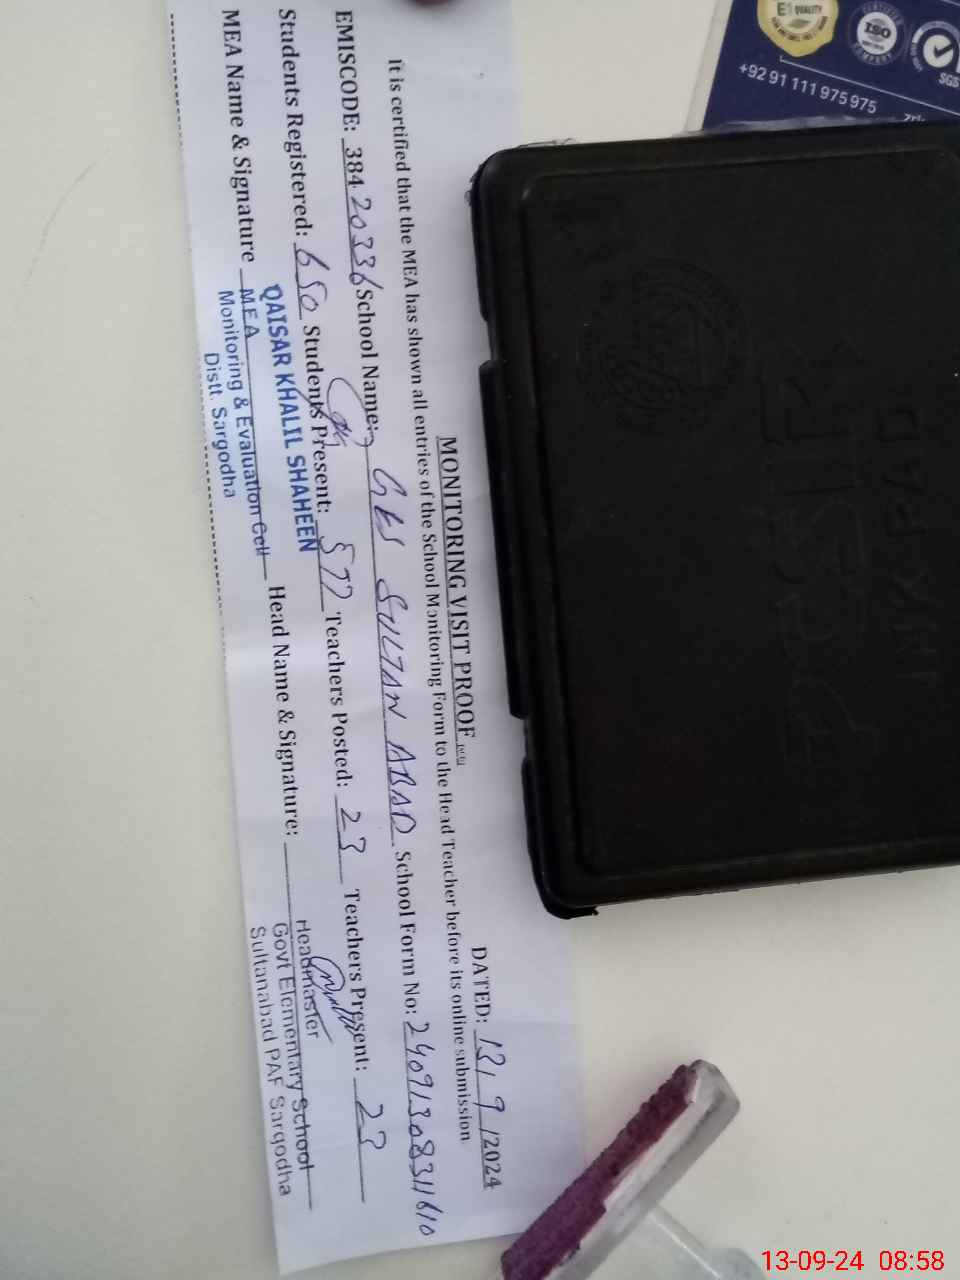 MONITORING VISIT PROOF
DATED: 13/9/2024
It is certified that the MEA has shown all entries of the School Monitoring Form to the Head Teacher before its online submission.
EMISCODE: 38420336 School Name: GES SULTAN ABAD School Form No:
Students Registered: 650 Students Present: 572 Teachers Posted: 23 Teachers Present: 23
MEA Name & Signature Head Name & Signature:
QAISAR KHALIL SHAHEEN
M.E.A
Monitoring & Evaluation Cell
Distt. Sargodha
Headmaster
Govt Elementary School
Sultanabad PAF Sargodha
QUALITY
CERTIFIED
ISO
COMPANY
SGS
+92 91 111 975 975
PCSIR
INK PAD
13-09-24 08:58